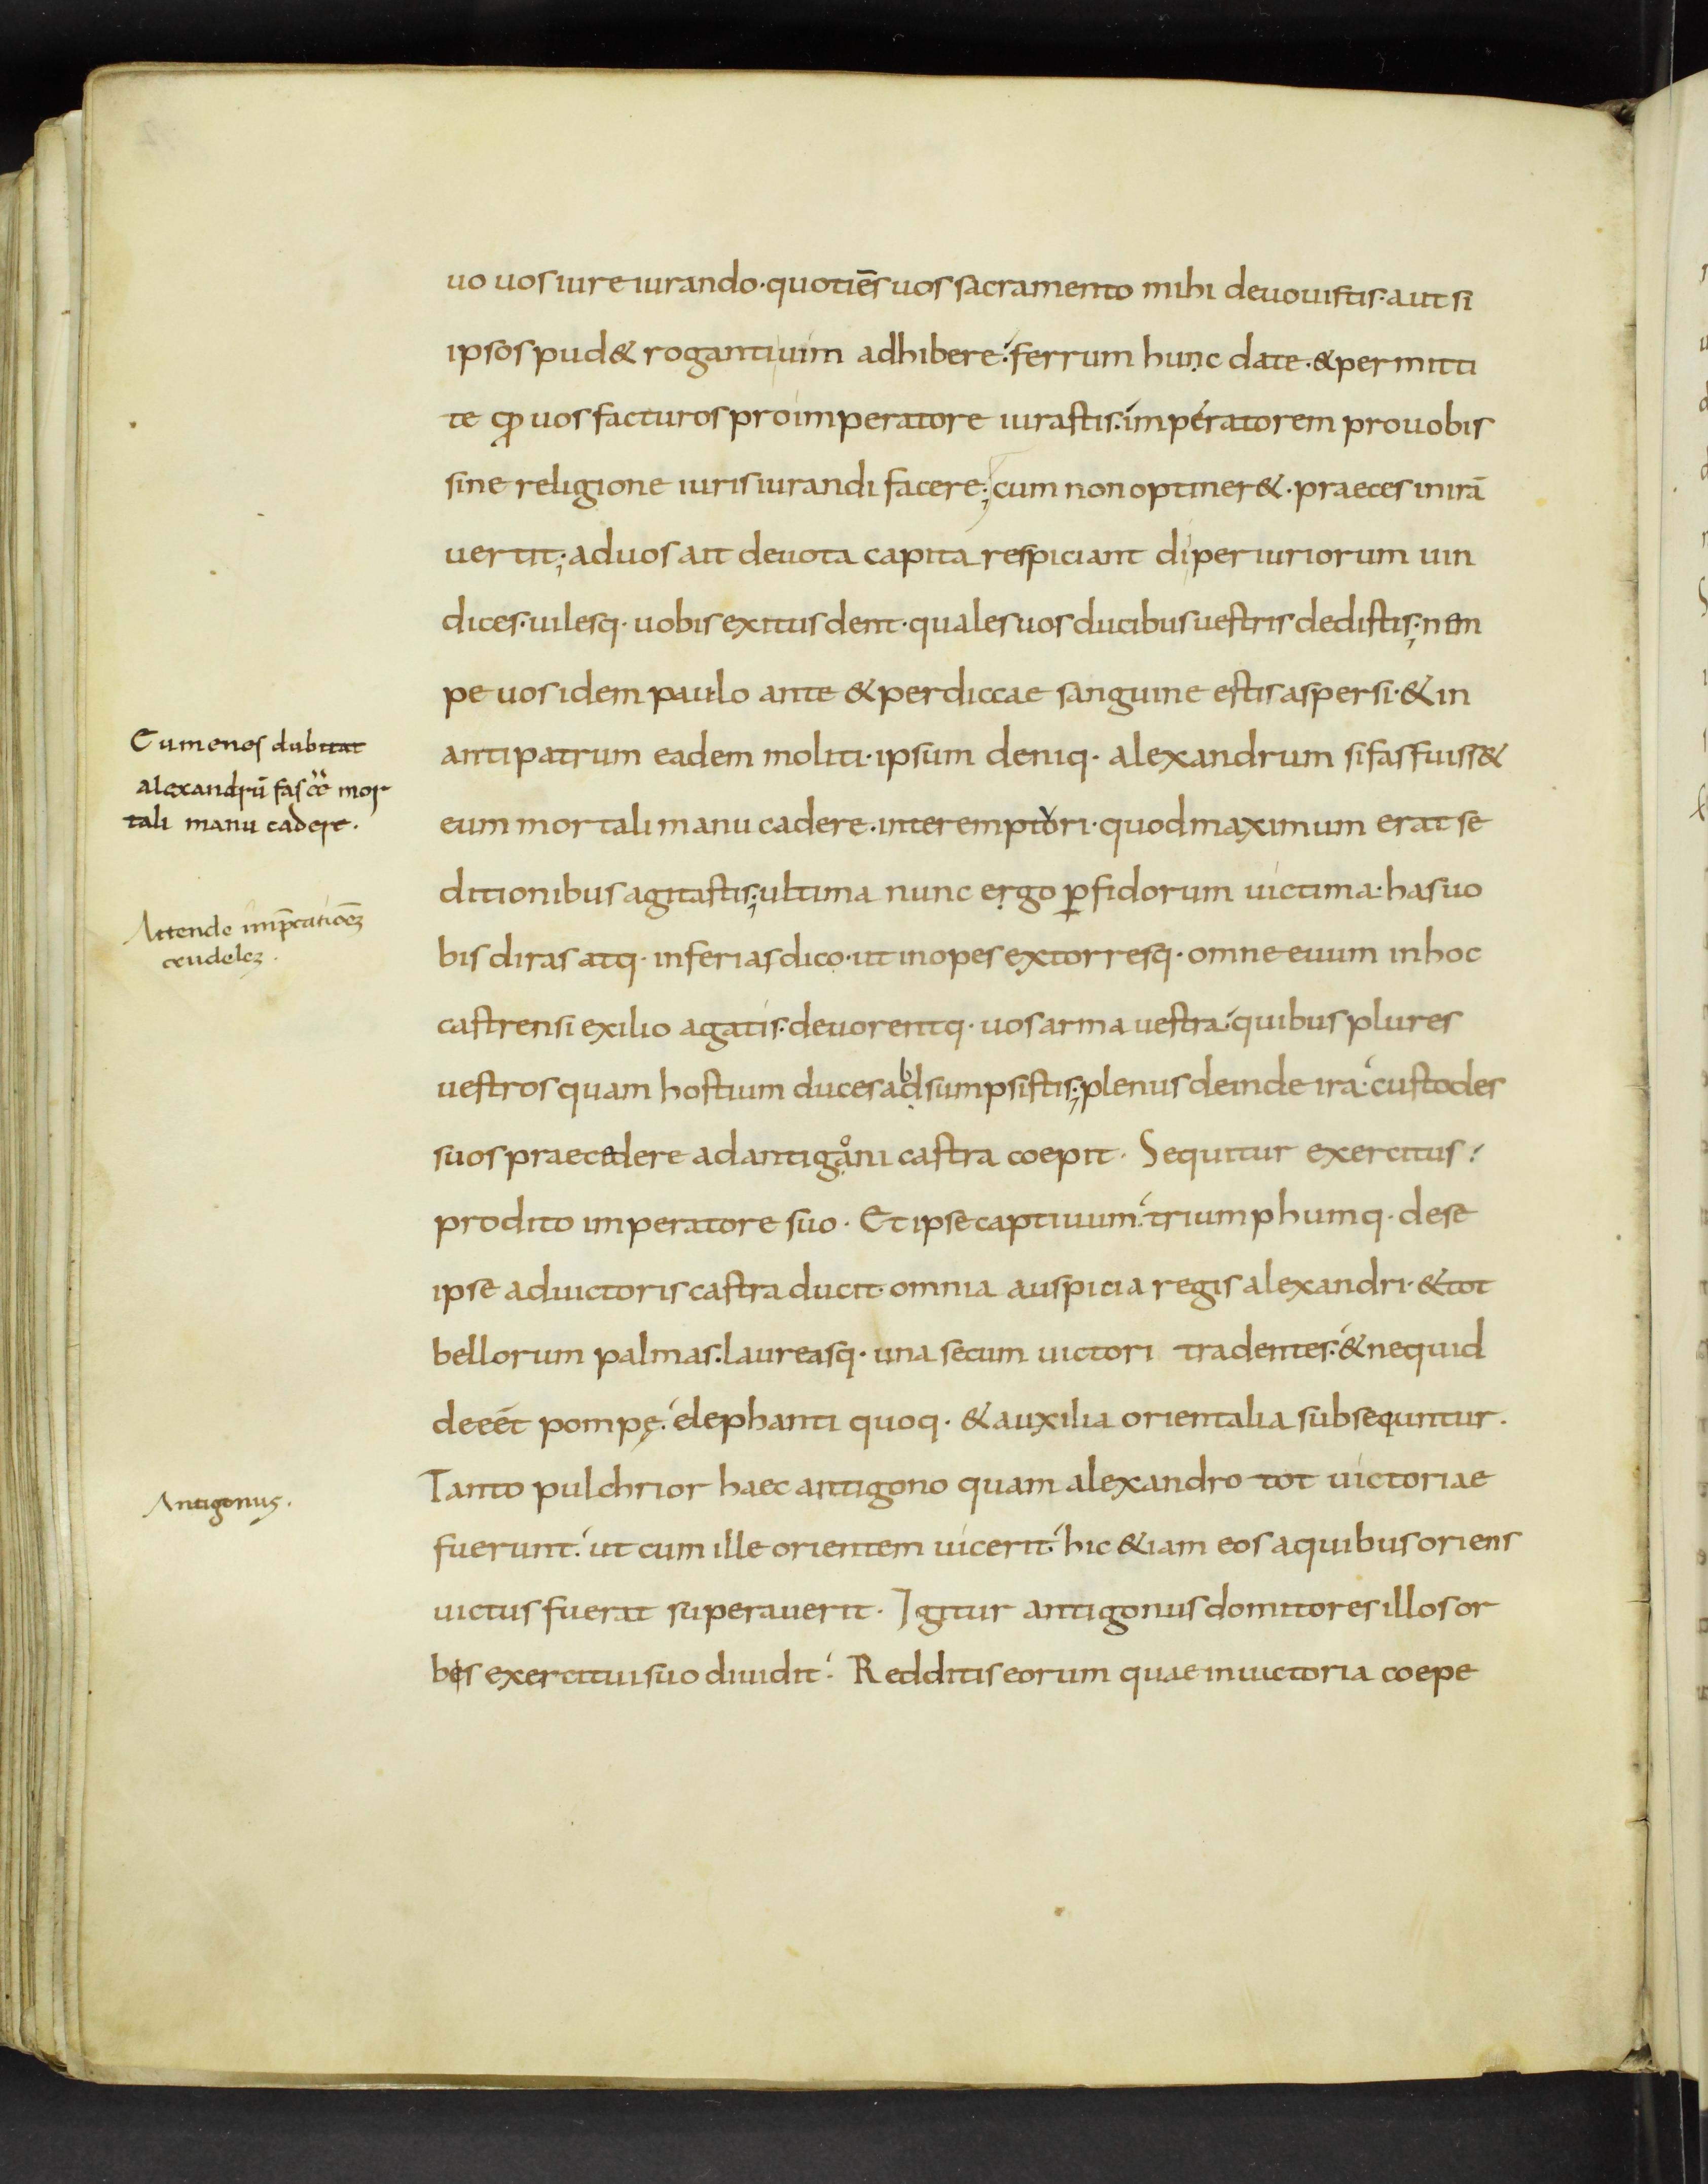 uo uos iure iurando · quotiēs uos sacramento mihi deuouistis · aut si
ipsos pud& rogantiuim adhibere ferrum hunc date · & permitti
te qđ uos facturos pro imperatore iurastis imperatorem pro uobis
sine religione iurisiurandi facere ; cum non optiner& · praeces in irā
uertit ; ad uos ait deuota capita respiciant di periuriorum uin
dices · uilesq · uobis exitus dent · quales uos ducibus uestris dedistis ; nem
pe uos idem paulo ante & perdiccae sanguine estis aspersi · & in
Eumenes dubitat
antipatrum eadem moliti · ipsum deniq · alexandrum si fas fuiss&
alexandrū fas eē mor
tali manu cadere .
eum mortali manu cadere · interemptori · quod maximum erat se
ditionibus agitastis ; ultima nunc ergo ꝑfidorum uictima · has uo
Attende imp̄catiōēs
crudeles .
bis diras atq · inferias dico · ut inopes extorresq · omne euum in hoc
castrensi exilio agatis · deuorentq · uos arma uestra quibus plures
uestros quam hostium duces adbsumpsistis ; plenus deinde ira custodes
suos praecedere ad antigoni castra coepit · Sequitur exercitus
prodito imperatore suo · Et ipse captiuum triumphumq · de se
ipse ad uictoris castra ducit · omnia auspicia regis alexandri · & tot
bellorum palmas · laureasq · una secum uictori tradentes & ne quid
deeēt pompę elephanti quoq · & auxilia orientalia subsequntur .
Antigonus .
Tanto pulchrior haec antigono quam alexandro tot uictoriae
fuerunt ut cum ille orientem uicerit hic &iam eos a quibus oriens
uictus fuerat superauerit · Igitur antigonus domitores illos or
bis exercitui suo diuidit Redditis eorum quae in uictoria coepe